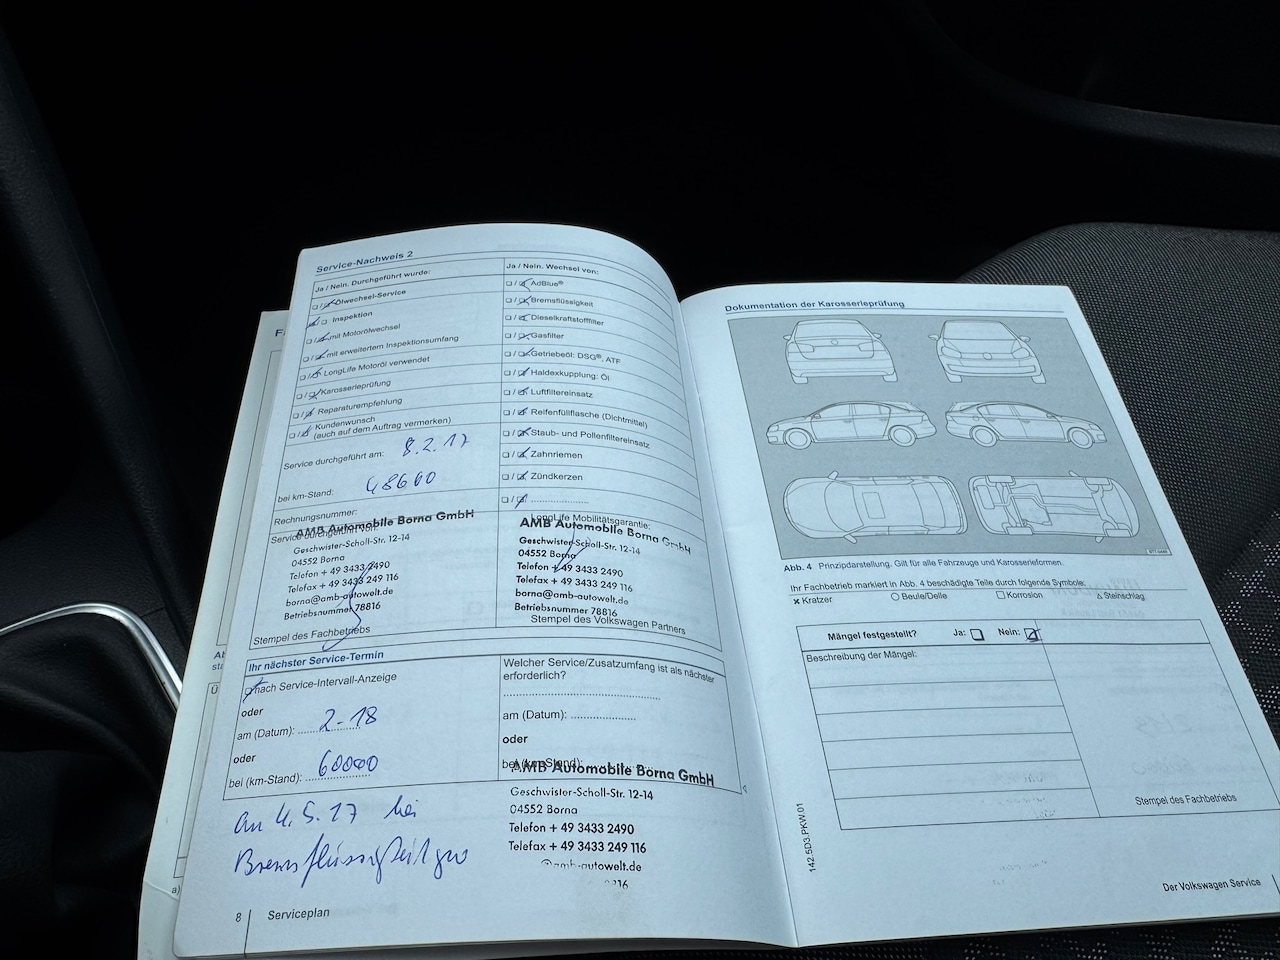 Service-Nachweis 2
Ja / Nein. Durchgeführt wurde:
Ölwechsel-Service
Inspektion
mit Motorölwechsel
mit erweitertem Inspektionsumfang
LongLife Motoröl verwendet
Karosserieprüfung
Reparaturempfehlung
Kundenwunsch
(auch auf dem Auftrag vermerken)
Service durchgeführt am: 8.2.17
bei km-Stand: 48660
Rechnungsnummer:
Service durchgeführt von:
AMB Automobile Borna GmbH
Geschwister-Scholl-Str. 12-14
04552 Borna
Telefon + 49 3433 2490
Telefax + 49 3433 249 116
borna@amb-autowelt.de
Betriebsnummer 78816
Stempel des Fachbetriebs
Ja / Nein. Wechsel von:
AdBlue®
Bremsflüssigkeit
Dieselkraftstofffilter
Gasfilter
Getriebeöl: DSG®, ATF
Haldexkupplung: Öl
Luftfiltereinsatz
Reifenfüllflasche (Dichtmittel)
Staub- und Pollenfiltereinsatz
Zahnriemen
Zündkerzen
LongLife Mobilitätsgarantie:
AMB Automobile Borna GmbH
Geschwister-Scholl-Str. 12-14
04552 Borna
Telefon + 49 3433 2490
Telefax + 49 3433 249 116
borna@amb-autowelt.de
Betriebsnummer 78816
Stempel des Volkswagen Partners
Ihr nächster Service-Termin
nach Service-Intervall-Anzeige
oder
am (Datum): 2-18
oder
bei (km-Stand): 60000
Welcher Service/Zusatzumfang ist als nächster
erforderlich?
am (Datum):
oder
bei (km-Stand):
AMB Automobile Borna GmbH
Geschwister-Scholl-Str. 12-14
04552 Borna
Telefon + 49 3433 2490
Telefax + 49 3433 249 116
@amb-autowelt.de
An 4.5.17
Bremsflüssigkeit
8 Serviceplan
Dokumentation der Karosserieprüfung
Abb. 4 Prinzipdarstellung. Gilt für alle Fahrzeuge und Karosserieformen.
Ihr Fachbetrieb markiert in Abb. 4 beschädigte Teile durch folgende Symbole:
× Kratzer
○ Beule/Delle
□ Korrosion
△ Steinschlag
Mängel festgestellt? Ja: Nein:
Beschreibung der Mängel:
Stempel des Fachbetriebs
142.5D3.PKW.01
Der Volkswagen Service